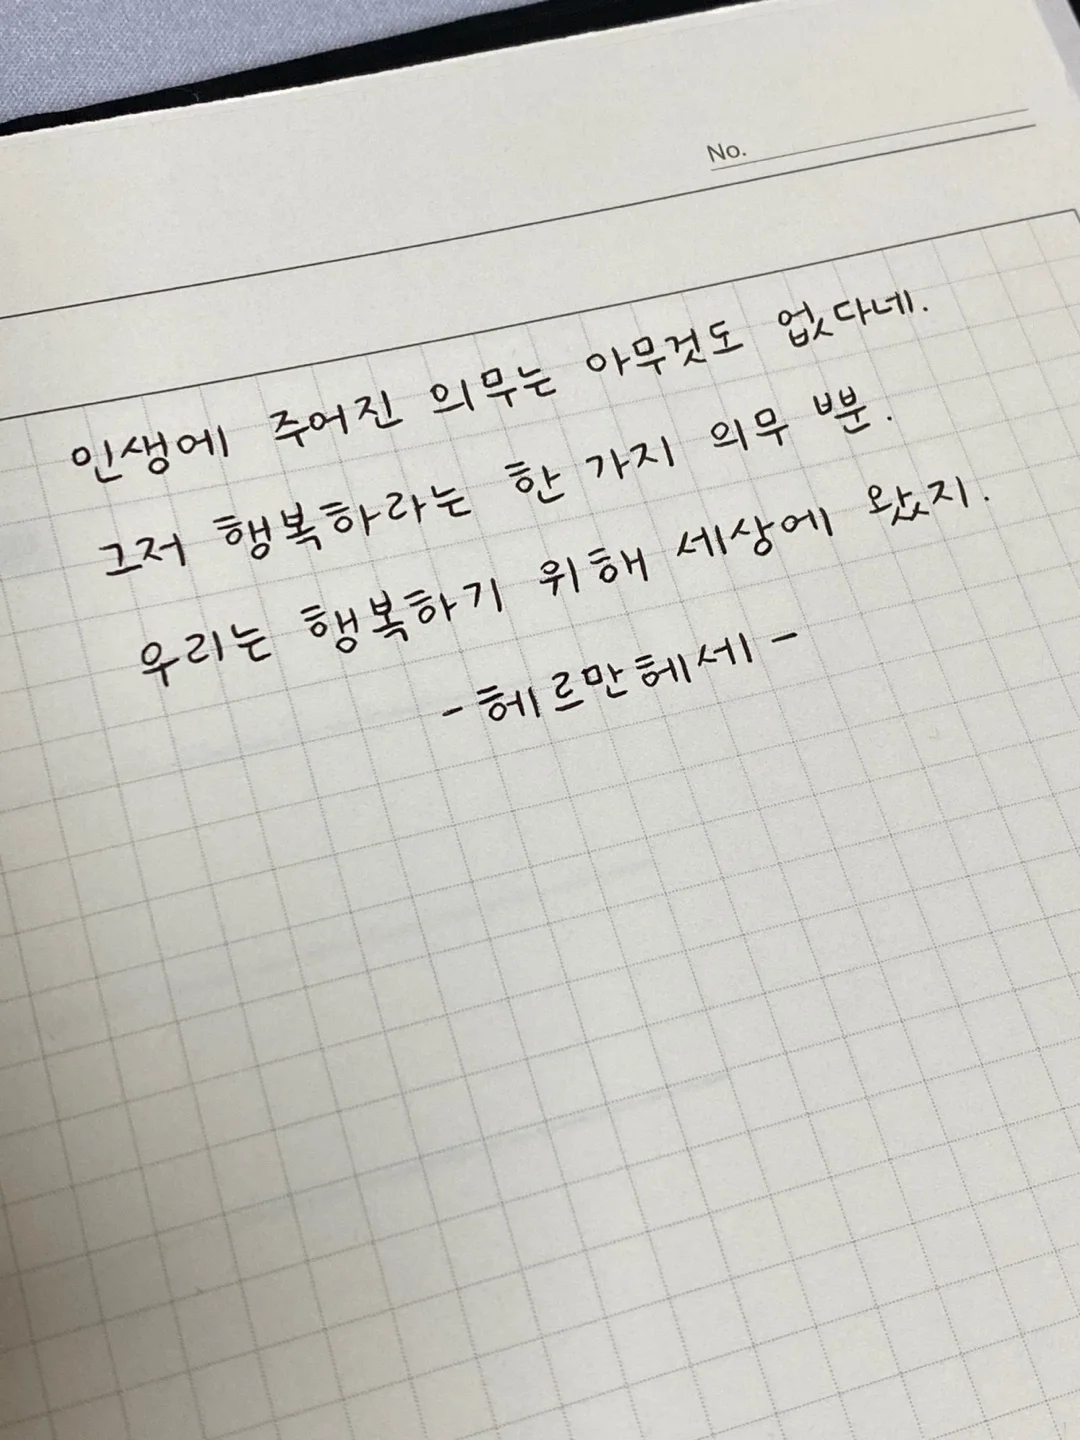 No.
인생에 주어진 의무는 아무것도 없다네.
그저 행복하라는 한 가지 의무 뿐.
우리는 행복하기 위해 세상에 왔지.
- 헤르만헤세 -